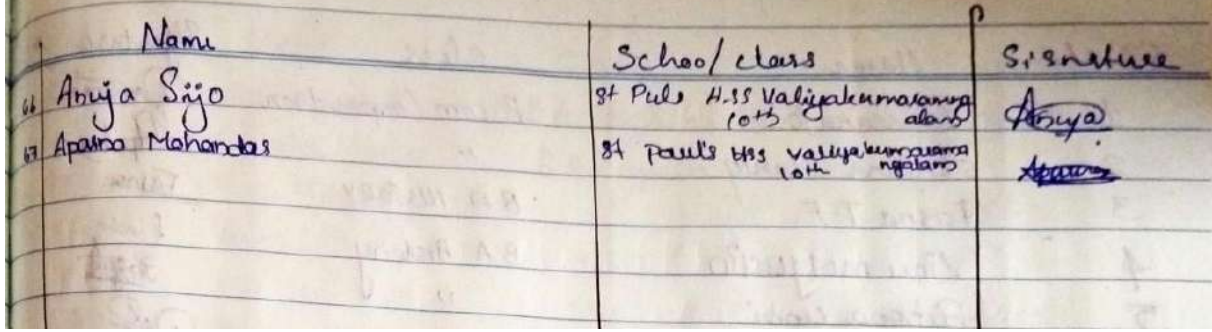 Name School/class Signature
66 Anuja Sijo St Puls H.SS Valiyakumaramang Anuja
10th alam
67 Aparna Mohandas St Paul's HSS valiyakumarama Aparna
10th ngalam